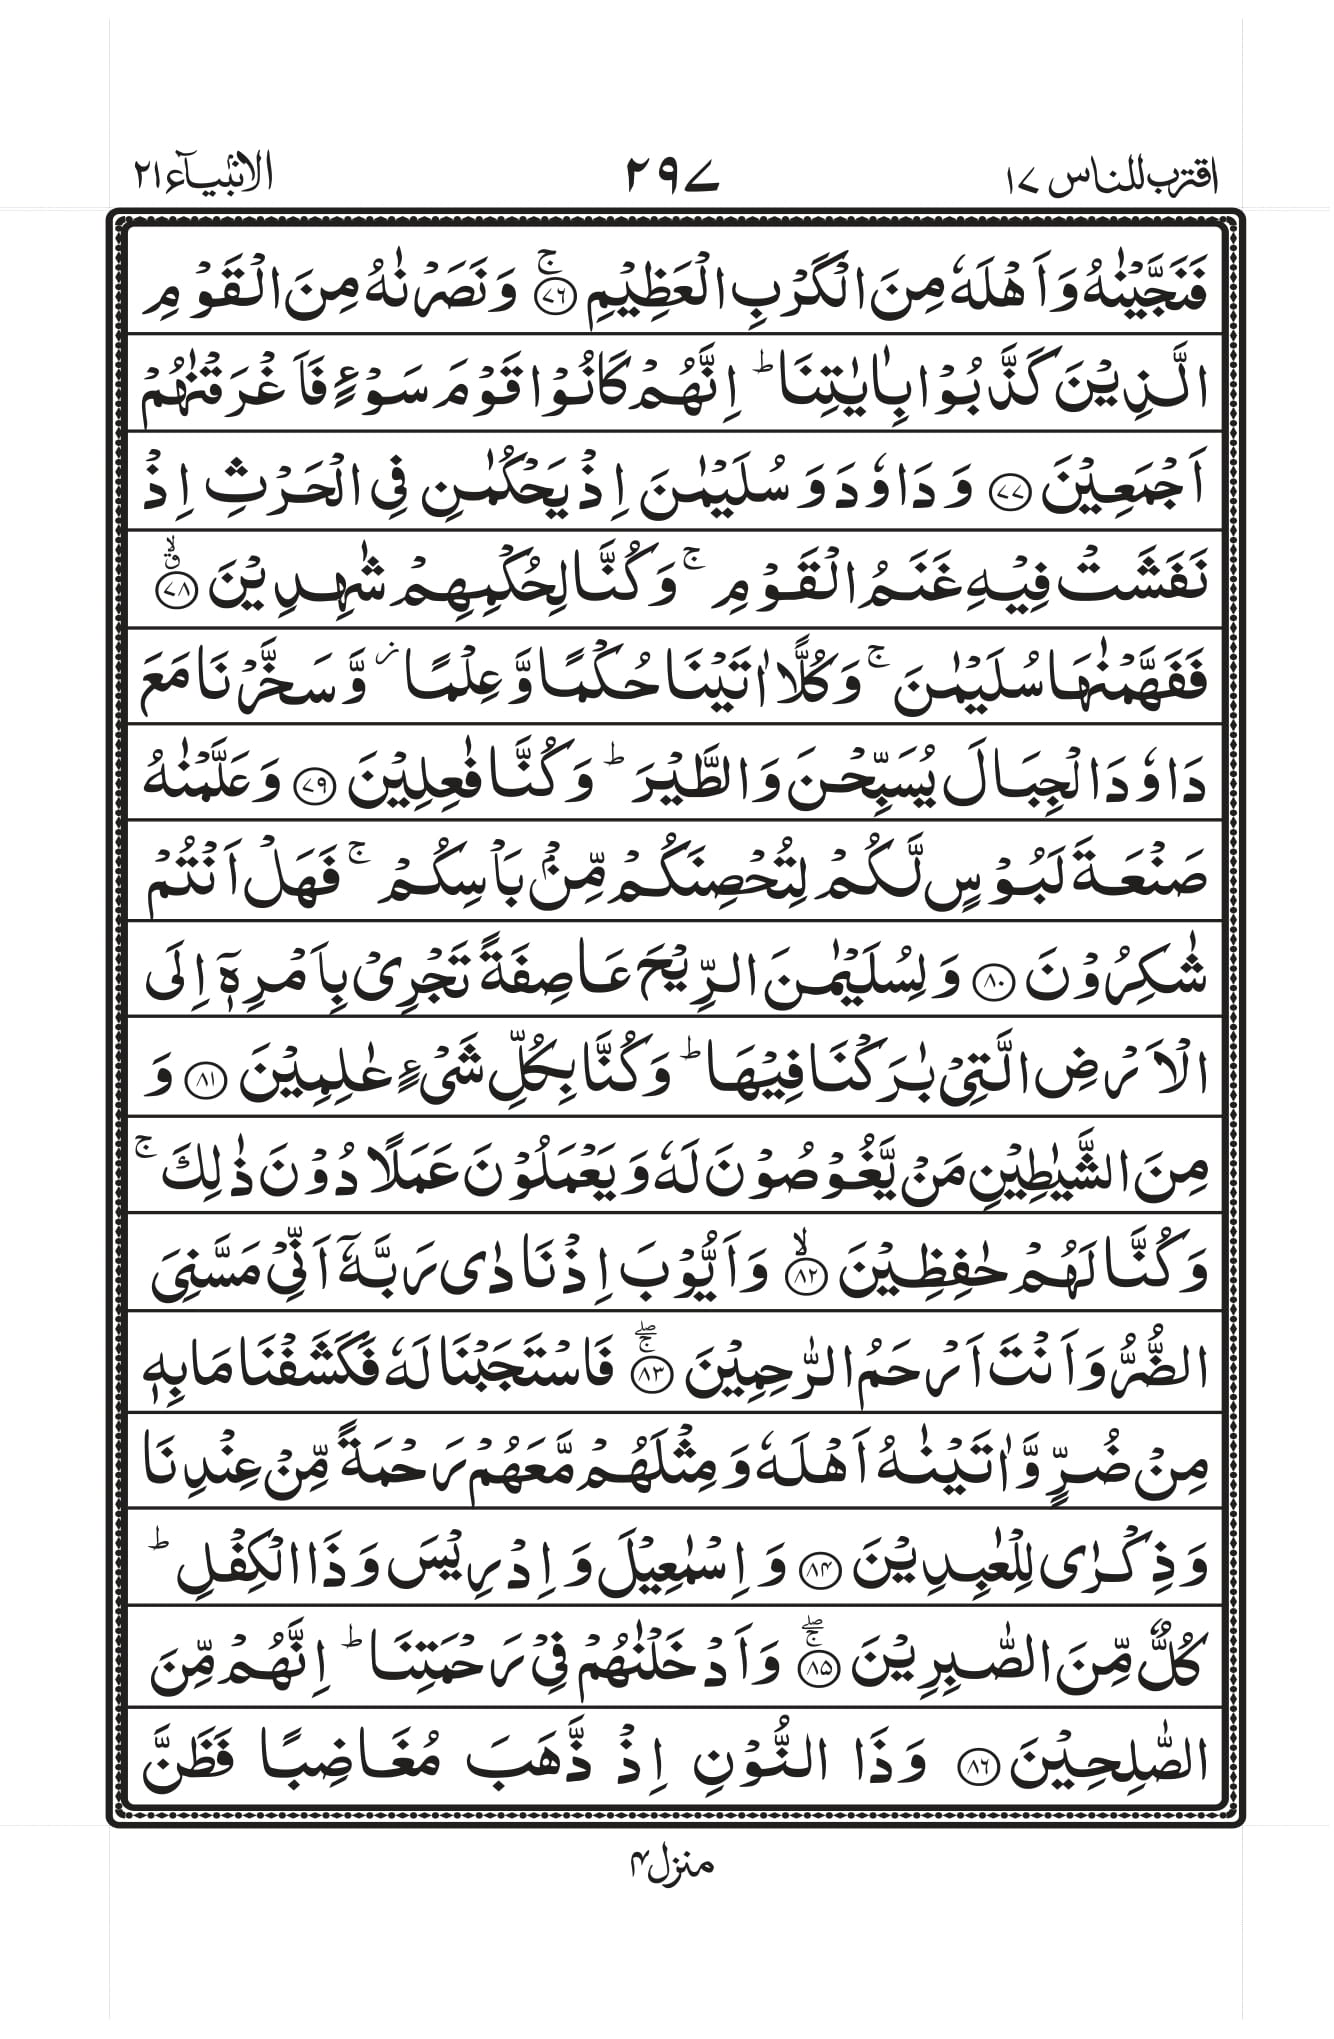 اقترب للناس ۱۷
۲۹۷
الانبیآء ۲۱
فَنَجَّيْنٰهُ وَاَهْلَهٗ مِنَ الْكَرْبِ الْعَظِيْمِ ۚ‏﴿۷۶﴾ وَنَصَرْنٰهُ مِنَ الْقَوْمِ
الَّذِيْنَ كَذَّبُوْا بِاٰيٰتِنَا ؕ اِنَّهُمْ كَانُوْا قَوْمَ سَوْءٍ فَاَغْرَقْنٰهُمْ
اَجْمَعِيْنَ ﴿۷۷﴾ وَدَاوٗدَ وَسُلَيْمٰنَ اِذْ يَحْكُمٰنِ فِى الْحَرْثِ اِذْ
نَفَشَتْ فِيْهِ غَنَمُ الْقَوْمِ ۚ وَكُنَّا لِحُكْمِهِمْ شٰهِدِيْنَ ۙق ﴿۷۸﴾
فَفَهَّمْنٰهَا سُلَيْمٰنَ ۚ وَكُلًّا اٰتَيْنَا حُكْمًا وَّعِلْمًا ز وَّسَخَّرْنَا مَعَ
دَاوٗدَ الْجِبَالَ يُسَبِّحْنَ وَالطَّيْرَ ؕ وَكُنَّا فٰعِلِيْنَ ﴿۷۹﴾ وَعَلَّمْنٰهُ
صَنْعَةَ لَبُوْسٍ لَّكُمْ لِتُحْصِنَكُمْ مِّنْۢ بَاْسِكُمْ ۚ فَهَلْ اَنْتُمْ
شٰكِرُوْنَ ﴿۸۰﴾ وَلِسُلَيْمٰنَ الرِّيْحَ عَاصِفَةً تَجْرِىْ بِاَمْرِهٖۤ اِلَى
الْاَرْضِ الَّتِىْ بٰرَكْنَا فِيْهَا ؕ وَكُنَّا بِكُلِّ شَىْءٍ عٰلِمِيْنَ ﴿۸۱﴾ وَ
مِنَ الشَّيٰطِيْنِ مَنْ يَّغُوْصُوْنَ لَهٗ وَيَعْمَلُوْنَ عَمَلًا دُوْنَ ذٰلِكَ ۚ
وَكُنَّا لَهُمْ حٰفِظِيْنَ ۙ﴿۸۲﴾ وَاَيُّوْبَ اِذْ نَادٰى رَبَّهٗۤ اَنِّىْ مَسَّنِىَ
الضُّرُّ وَاَنْتَ اَرْحَمُ الرّٰحِمِيْنَ ۚۖ﴿۸۳﴾ فَاسْتَجَبْنَا لَهٗ فَكَشَفْنَا مَا بِهٖ
مِنْ ضُرٍّ وَّاٰتَيْنٰهُ اَهْلَهٗ وَمِثْلَهُمْ مَّعَهُمْ رَحْمَةً مِّنْ عِنْدِنَا
وَذِكْرٰى لِلْعٰبِدِيْنَ ﴿۸۴﴾ وَاِسْمٰعِيْلَ وَاِدْرِيْسَ وَذَا الْكِفْلِ ؕ
كُلٌّ مِّنَ الصّٰبِرِيْنَ ۚۖ﴿۸۵﴾ وَاَدْخَلْنٰهُمْ فِىْ رَحْمَتِنَا ؕ اِنَّهُمْ مِّنَ
الصّٰلِحِيْنَ ﴿۸۶﴾ وَذَا النُّوْنِ اِذْ ذَّهَبَ مُغَاضِبًا فَظَنَّ
منزل ۴